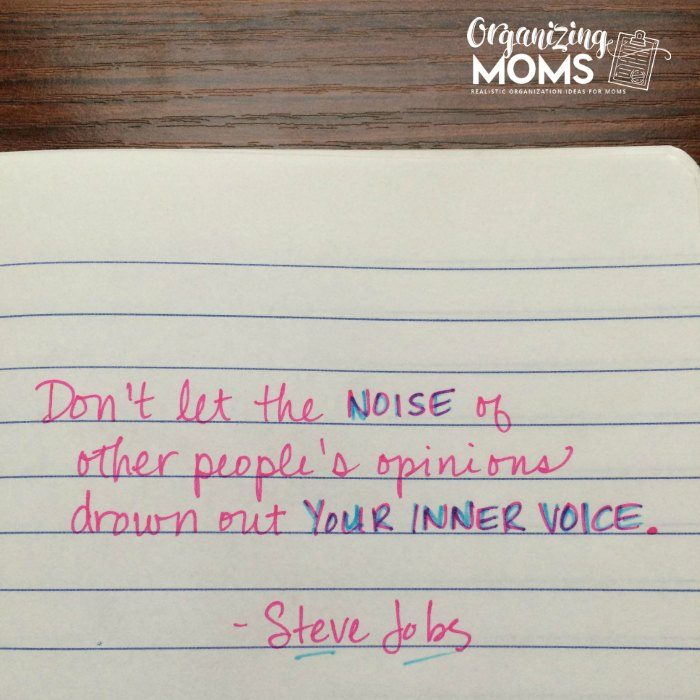 Organizing
MOMS
REALISTIC ORGANIZATION IDEAS FOR MOMS
Don't let the NOISE of
other people's opinions
drown out YOUR INNER VOICE.
- Steve Jobs